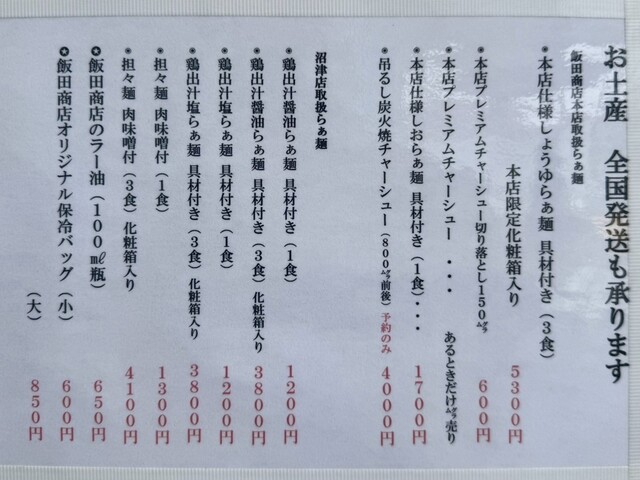 お土産　全国発送も承ります
飯田商店本店取扱らぁ麺
＊本店仕様しょうゆらぁ麺 具材付き（３食）
本店限定化粧箱入り　５３００円
＊本店プレミアムチャーシュー切り落とし１５０㌘　６００円
＊本店プレミアムチャーシュー ・・・ あるときだけ㌘売り
＊本店仕様しおらぁ麺 具材付き（１食）・・・　１７００円
＊吊るし炭火焼チャーシュー（８００㌘前後）予約のみ　４０００円
沼津店取扱らぁ麺
＊鶏出汁醤油らぁ麺 具材付き（１食）　１２００円
＊鶏出汁醤油らぁ麺 具材付き（３食）化粧箱入り　３８００円
＊鶏出汁塩らぁ麺 具材付き（１食）　１２００円
＊鶏出汁塩らぁ麺 具材付き（３食）化粧箱入り　３８００円
＊担々麺 肉味噌付（１食）　１３００円
＊担々麺 肉味噌付（３食）化粧箱入り　４１００円
✪飯田商店のラー油（１００㎖瓶）　６５０円
✪飯田商店オリジナル保冷バッグ（小）　６００円
（大）　８５０円